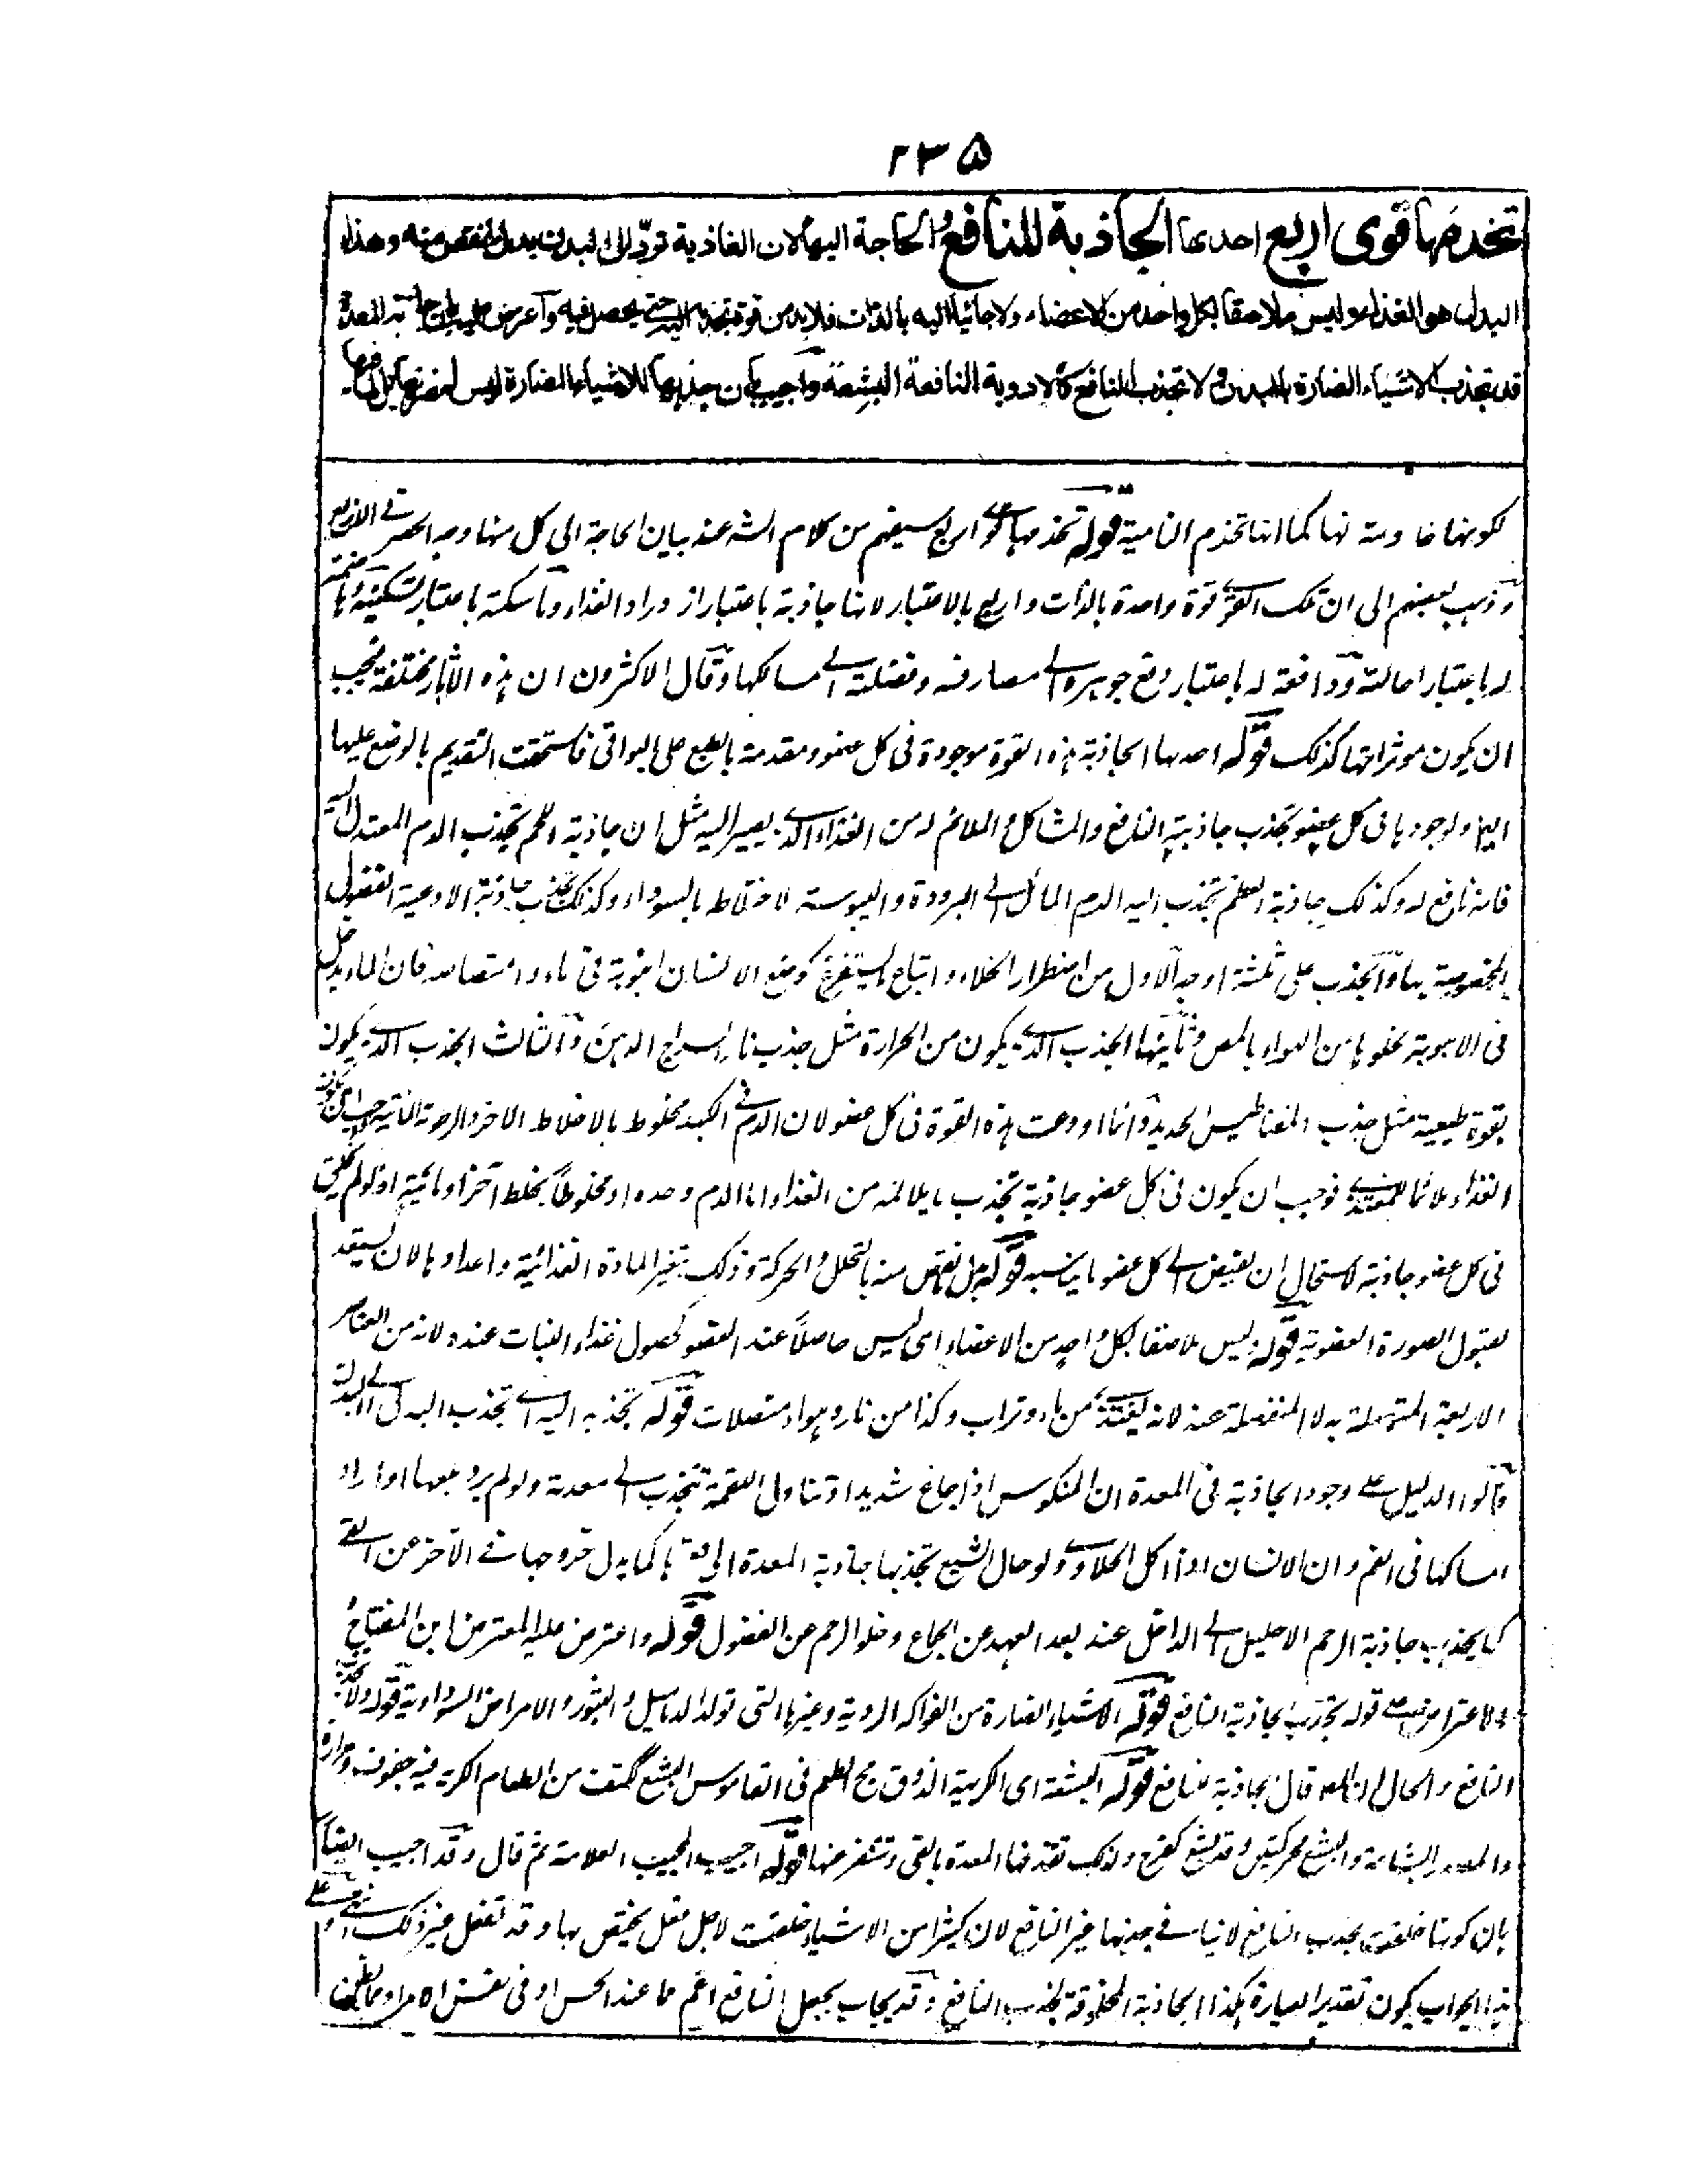 ٢٣٥
تخدمها قوى اربع احدها الجاذبة للنافع والحاجة اليها لان الغاذية تورد الى البدن بدل ما نقص منه وهذا
البدل هو الغذاء وليس ملاصقا لكل واحد من الاعضاء ولا جائيا اليه بالذات فلابد من قوة تجذبه اليه حتى يحصل فيه واعرض عليه بان جاذبة المعدة
قد تجذب الاشياء الضارة بالبدن ولا تجذب المنافع كالادوية النافعة البشعة واجيب بان جذبها للاشياء الضارة ليس لمضرتها بل
لكونها خادمة لها كما انها تخدم النامية قوله تخدمها قوى اربع سيفهم من كلام الشه عند بيان الحاجة الى كل منها وجه الحصر فى الاربع
وذهب بعضهم الى ان تلك القوى قوة واحدة بالذات واربع بالاعتبار لانها جاذبة باعتبار ازدراد الغذاء وماسكة باعتبار تسكينه وهاضمة
له باعتبار احالته ودافعة له باعتبار دفع جوهره الى مصارفه وفضلته الى مسالكها وقال الاكثرون ان هذه الآثار مختلفة فيجب
ان يكون موثراتها كذلك قوله احدها الجاذبة هذه القوة موجودة فى كل عضو ومقدمة بالطبع على البواقى فاستحقت التقديم بالوضع عليها
ايض ولوجودها فى كل عضو تجذب جاذبته النافع والمشاكل والملائم له من الغذاء الذى يصير اليه مثل ان جاذبة اللحم تجذب الدم المعتدل اليه
فانه نافع له وكذلك جاذبة العظم تجذب اليه الدم المائل الى البرودة واليبوسة لاختلاط بالسوداء وكذلك تجذب جاذبة الاوعية الفضول
المخصوصة بها والجذب على ثلثة اوجه الاول من اضطرار الخلاء واتباع المستفرغ كوضع الانسان انبوبة فى ماء وامتصاصه فان الماء يدخل
فى الانبوبة لخلوها من الهواء بالمص وثانيها الجذب الذى يكون من الحرارة مثل جذب نار السراج الدهن والثالث الجذب الذى يكون
بقوة طبيعية مثل جذب المغناطيس الحديد وانما اودعت هذه القوة فى كل عضو لان الدم فى الكبد مخلوط بالاخلاط الاخر والرحمة الالهية
الغذاء ملائما للمغتذى فوجب ان يكون فى كل عضو جاذبة تجذب ما يلائمه من الغذاء اما الدم وحده او مخلوطاً بخلط آخر او مائية اذ لو لم يخلق
فى كل عضو جاذبة لاستحال ان يفيض الى كل عضو ما يناسبه قوله بدل ما نقص منه بالتحلل والحركة وذلك بتغير المادة الغذائية واعدادها لان يستعد
لقبول الصورة العضوية قوله وليس ملاصقا لكل واحد من الاعضاء اى ليس حاصلاً عند العضو كحصول غذاء النبات عنده لانه من العناصر
الاربعة المتصلة به لا المنفصلة عنه لانه يغتذى من ماء وتراب وكذا من نار وهواء متصلات قوله تجذبه اليه اى تجذب البدل الى
وقالوا الدليل على وجود الجاذبة فى المعدة ان المنكوس اذا جاع شديدا وتناول اللقمة تنجذب الى معدته ولو لم يرد بلعها او اراد
امساكها فى الفم وان الانسان اذا اكل الحلاوى ولو حال الشبع تجذبها جاذبة المعدة الى كما يدل خروجها فى الآخر عن القى
كما يجذب جاذبة الرحم الاحليل الى الداخل عند بعد العهد عن الجماع وخلو الرحم عن الفضول قوله واعترض عليه المعترض ابن المفتاح
والاعتراض على قوله الجاذبة النافع قوله الاشياء الضارة من الفواكه الردية وغيرها التى تولد الدماميل والبثور والامراض السوداوية قوله ولا تجذب
النافع والحال ان المصه قال الجاذبة للنافع قوله البشعة اى الكريهة الذوق مع الطعم فى القاموس البشع ككتف من الطعام الكريه فيه حفوف ومرارة
والمصدر البشاعة والبشع محركتين وقد بشع كفرح ولذلك تقذفها المعدة بالقى وتتنفر منها قوله اجيب المجيب العلامة ثم قال وقد اجيب ايضا
بان كونها خلقت لجذب النافع لا ينافى جذبها غير النافع لان كثيرا من الاشياء خلقت لاجل فعل يختص بها وقد تفعل غير ذلك انتهى وعلى
هذا الجواب يكون تقدير العبارة هكذا الجاذبة المخلوقة لجذب النافع وقد يجاب بجعل النافع اعم مما عند الحس او فى نفس الامر